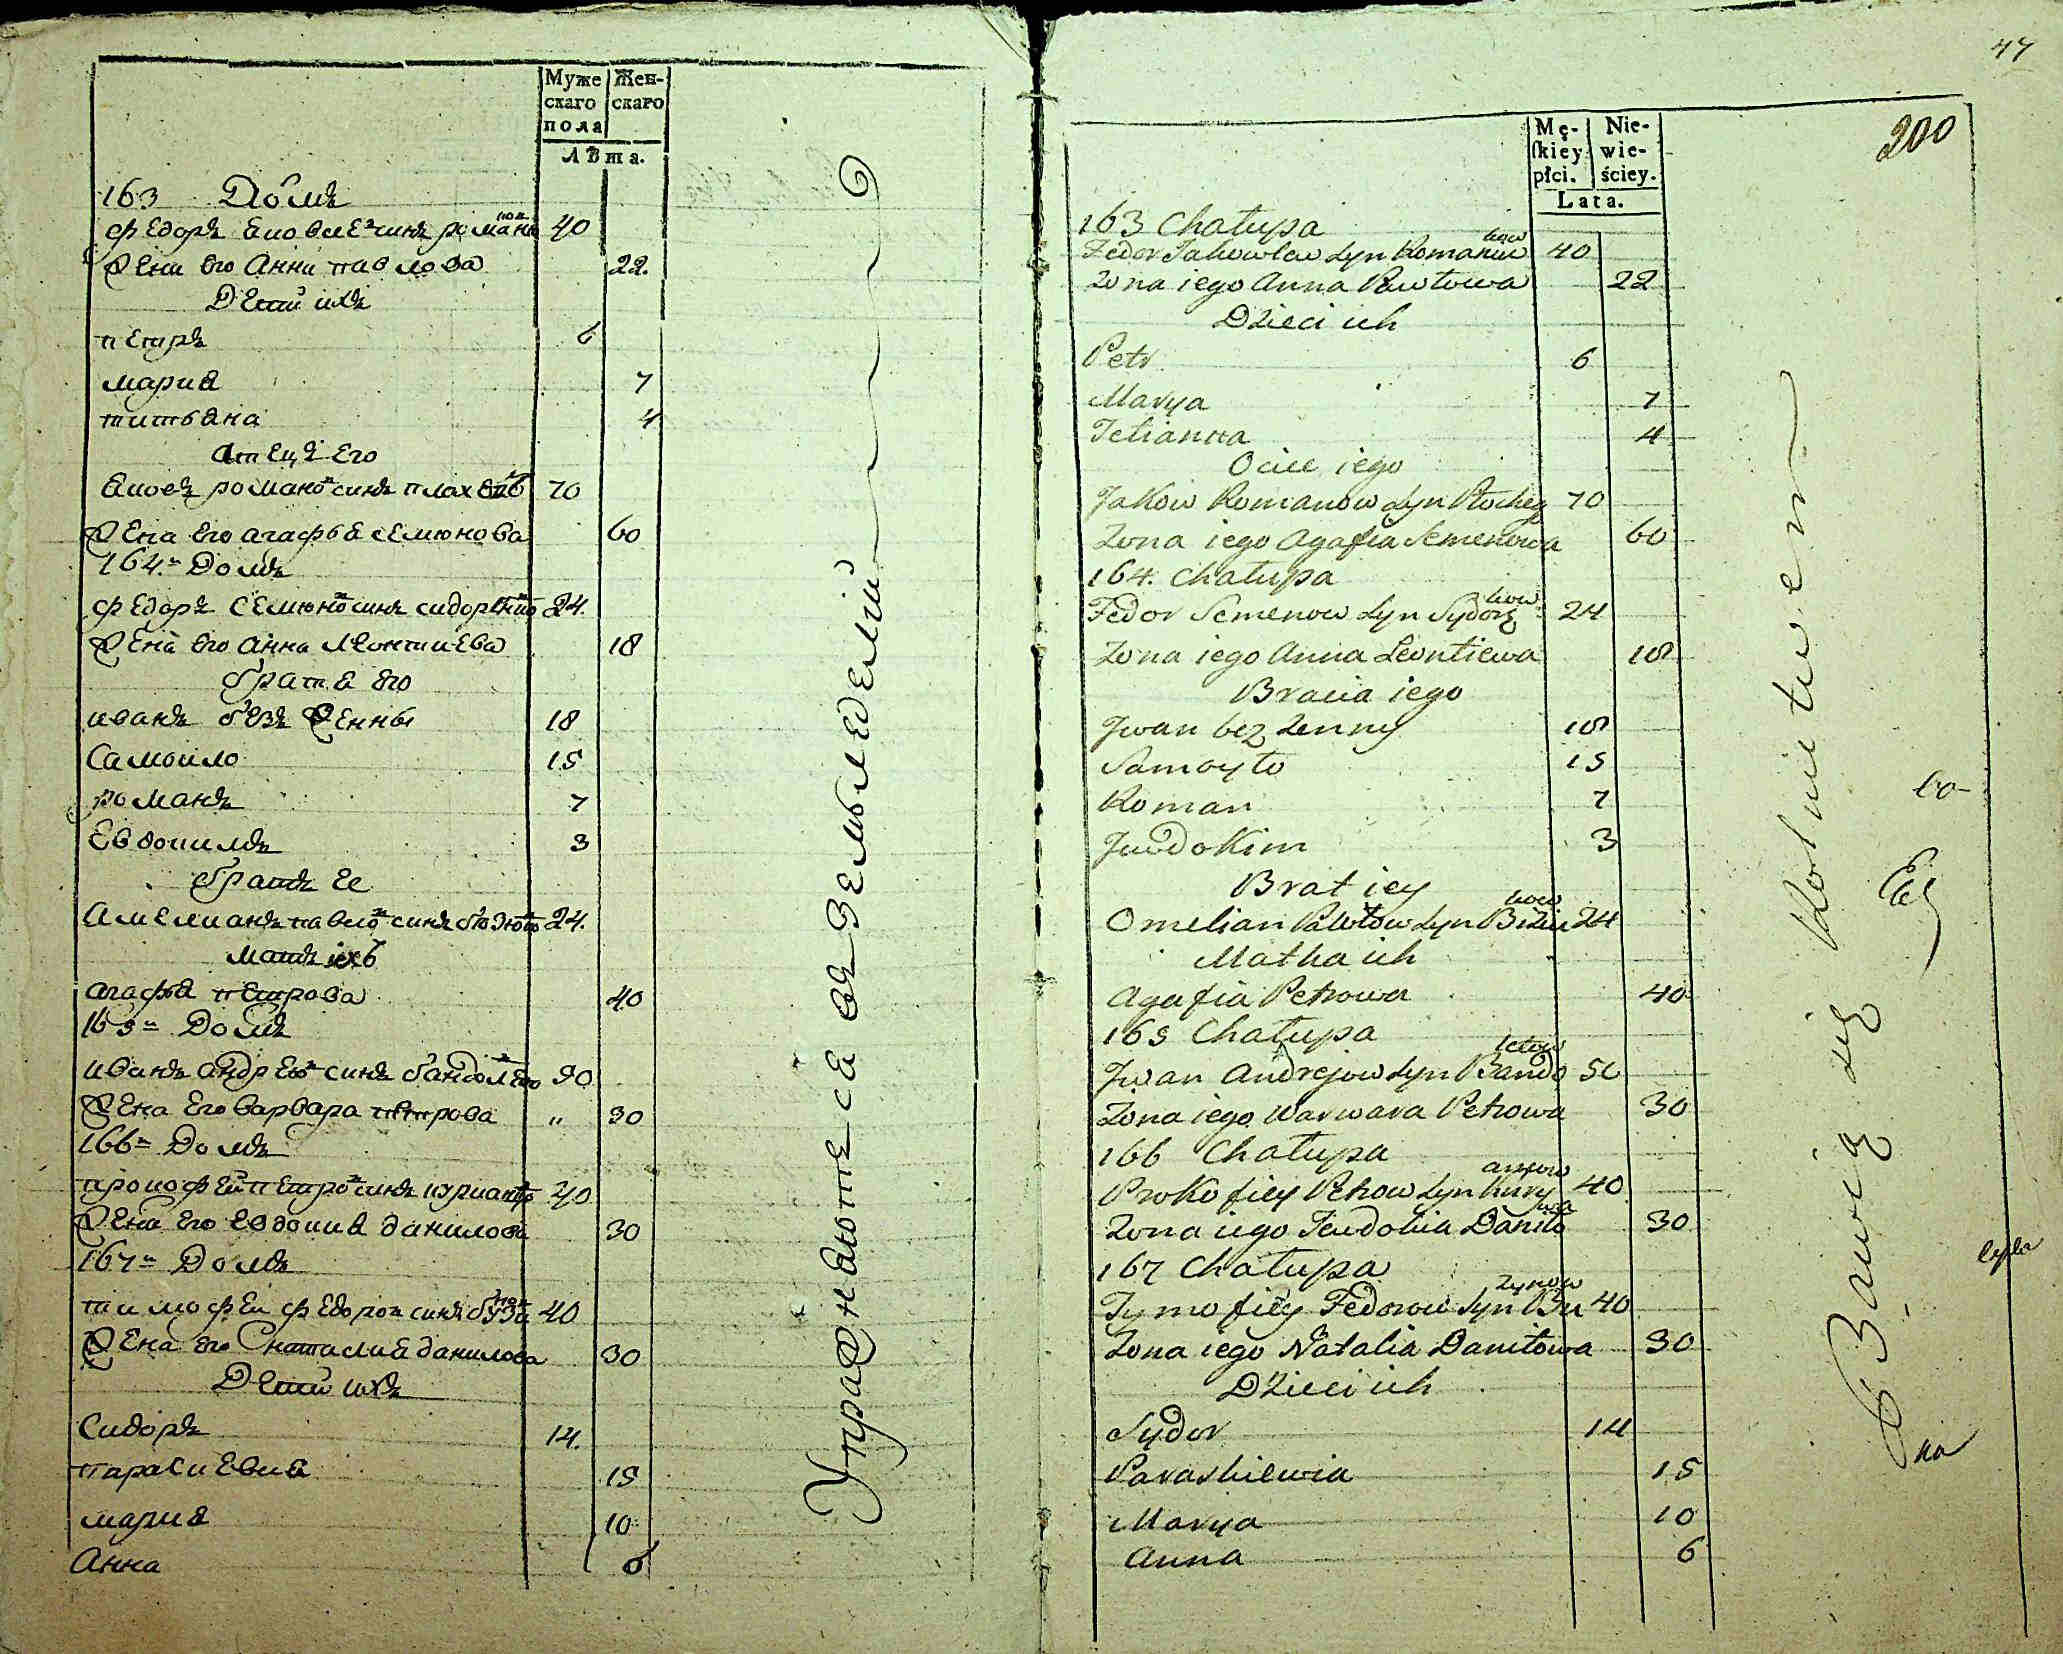 Муже
скаго
пола
Жен-
скаго
Лѣта.
163 Домъ
Федоръ Яковлевъ синъ романюков 40
Жена его Анна павлова 22.
Дети ихъ
петръ 6
мария 7
титьяна 4
Атецъ его
Яковъ романовъ синъ 70
Жена его агафья семюнова 60
164. Домъ
федоръ семюновъ синъ 24.
Жена его Анна Леонтиева 18
братя его
иванъ безъ Женны 18
Самоило 15
романъ 7
Евдокимъ 3
братъ ее
Амелианъ павловъ синъ 24.
мать ихъ
агафья петрова 40
165 Домъ
иванъ андреювъ синъ 50
Жена Его варвара петрова " 30
166 Домъ
прокофей петровъ синъ 40
Жена Его Евдокия данилова 30
167 Домъ
тимофеи федоров синъ 40
Жена его наталия данилова 30
Дети ихъ
Сидоръ 14.
параскевия 15
мария 10
Анна 6
Упражняюте ся въ Земьледелий
47
200
Mę-
skiey
płci.
Nie-
wie-
ściey.
Lata.
163 Chałupa
Fedor Jakowlew Syn Romaniukow 40
Zona iego Anna Pawłowa 22
Dzieci ich
Petr 6
Marya 7
Tetianna 4
Ociec iego
Jakow Romanow Syn 70
Zona iego Agafia Semenowa 60
164. Chałupa
Fedor Semenow Syn 24
Zona iego Anna Leontiewa 18
Bracia iego
Jwan bez Zenny 18
Samoyło 15
Roman 7
Jewdokim 3
Brat iey
Omelian Pawłow Syn 24
Matka ich
Agafia Petrowa 40
165 Chałupa
Jwan Andrejow Syn Bandoletow 50
Zona iego Warwara Petrowa 30
166 Chałupa
Prokofiey Petrow Syn Kuryanow 40
Zona iego Jewdokia Daniłowa 30
167 Chałupa
Tymofiey Fedorow Syn Buzynow 40
Zona iego Natalia Daniłowa 30
Dzieci ich
Sydor 14
Paraskiewia 15
Marya 10
Anna 6
Bawią się Rolnictwem